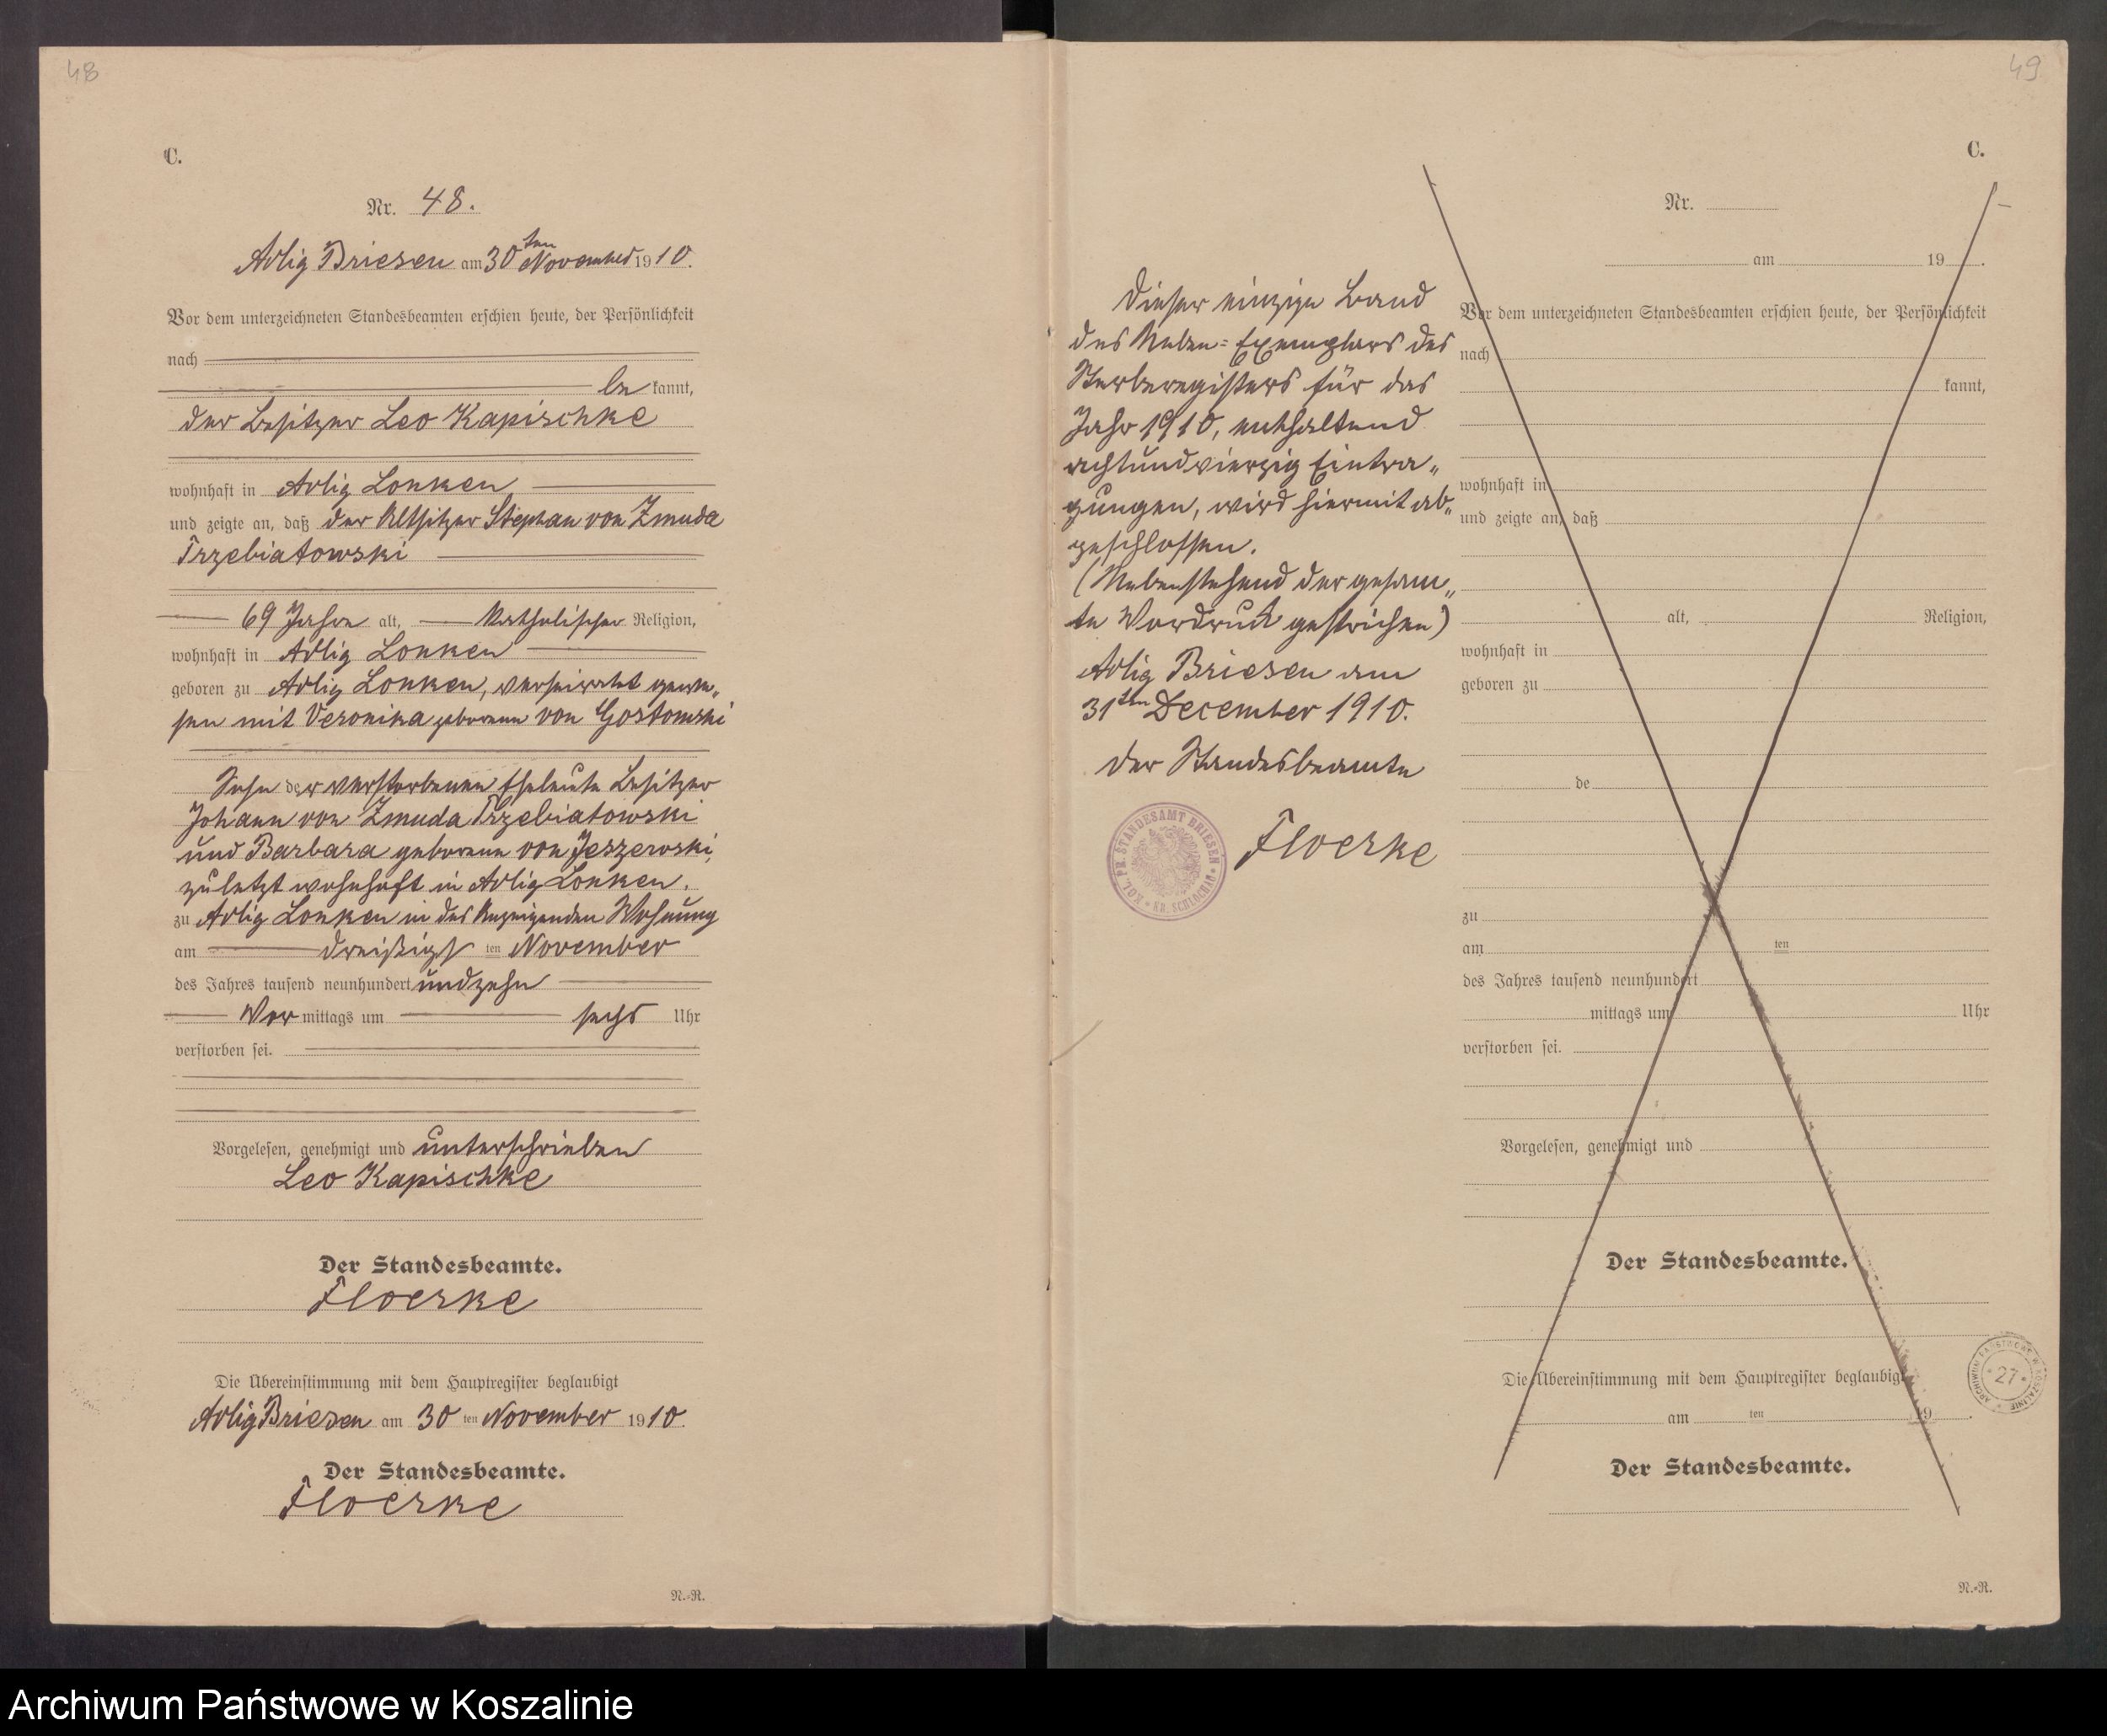 48
C.
Nr. 48.
Adlig Briesen am 30ten November 1910.
Vor dem unterzeichneten Standesbeamten erschien heute, der Persönlichkeit
nach
be kannt,
der Besitzer Leo Kapischke
wohnhaft in Adlig Lonken
und zeigte an, daß der Altsitzer Stephan von Zmuda
Trzebiatowski
69 Jahre alt, katholischer Religion,
wohnhaft in Adlig Lonken
geboren zu Adlig Lonken, verheirathet gewe„
sen mit Veronika geborene von Gostomski
Sohn der verstorbenen Eheleute Besitzer
Johann von Zmuda Trzebiatowski
und Barbara geborene von Jeszerwski,
zuletzt wohnhaft in Adlig Lonken.
zu Adlig Lonken in des Anzeigenden Wohnung
am dreißigs ten November
des Jahres tausend neunhundert undzehn
Vor mittags um sechs Uhr
verstorben sei.
Vorgelesen, genehmigt und unterschrieben
Leo Kapischke
Der Standesbeamte.
Floerke
Die Übereinstimmung mit dem Hauptregister beglaubigt
Adlig Briesen am 30 ten November 1910.
Der Standesbeamte.
Floerke
N.=R.
Dieser einzige Band
des Neben=Exemplars des
Sterberegisters für das
Jahr 1910, enthaltend
achtundvierzig Eintra„
gungen, wird hiermit ab„
geschlossen.
(Nebenstehend der gesam„
te Vordruck gestrichen)
Adlig Briesen am
31ten December 1910.
Der Standesbeamte
Floerke
KÖL. PR. STANDESAMT BRIESEN * KR. SCHLOCHAU *
49
C.
Nr.
am 19 .
Vor dem unterzeichneten Standesbeamten erschien heute, der Persönlichkeit
nach
kannt,
wohnhaft in
und zeigte an, daß
alt, Religion,
wohnhaft in
geboren zu
de
zu
am ten
des Jahres tausend neunhundert
mittags um Uhr
verstorben sei.
Vorgelesen, genehmigt und
Der Standesbeamte.
Die Übereinstimmung mit dem Hauptregister beglaubigt
am ten 19 .
Der Standesbeamte.
ARCHIWUM PAŃSTWOWE W KOSZALINIE
* 27 *
N.=R.
Archiwum Państwowe w Koszalinie